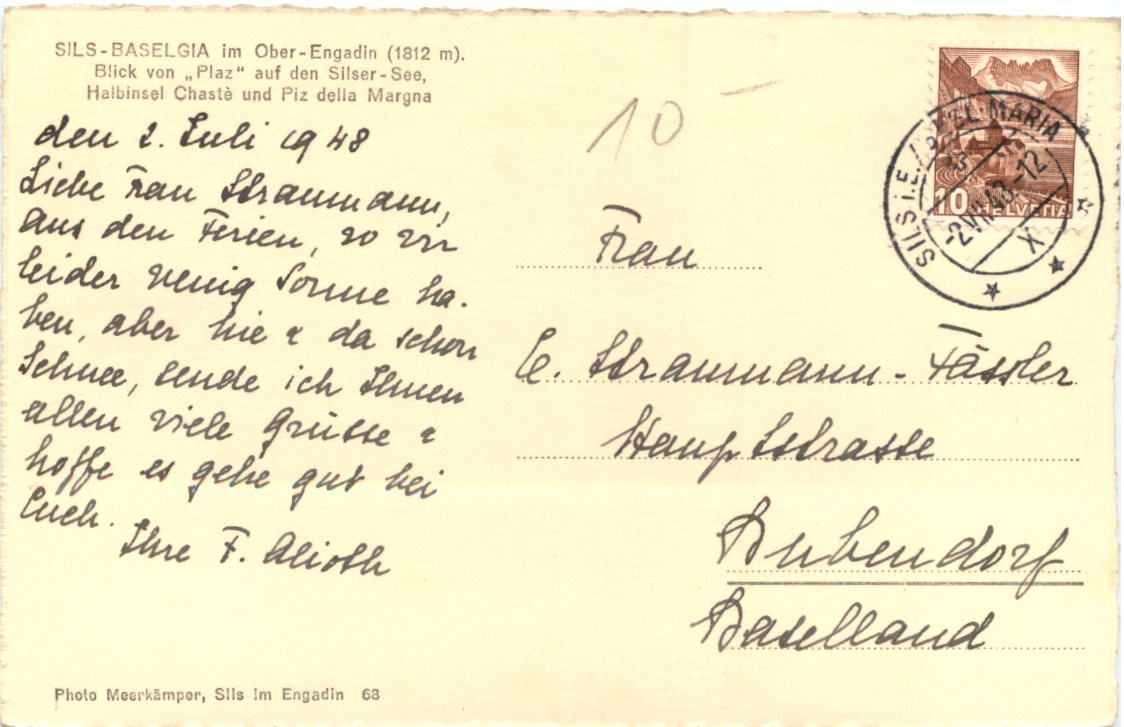 SILS-BASELGIA im Ober-Engadin (1812 m).
Blick von „Plaz" auf den Silser-See,
Halbinsel Chastè und Piz della Margna
den 2. Juli 1948
Liebe Frau Straumann,
aus den Ferien, wo wir
leider wenig Sonne ha-
ben, aber hie & da schon
Schnee, sende ich Ihnen
allen viele Grüsse &
hoffe es gehe gut bei
Euch.
Ihre F. Alioth
Photo Meerkämper, Sils im Engadin 68
10 -
SILS i.E./SEGL-MARIA
-2.VII.48-12
X
10 HELVETIA
Frau
E. Straumann-Fässler
Hauptstrasse
Bubendorf
Baselland